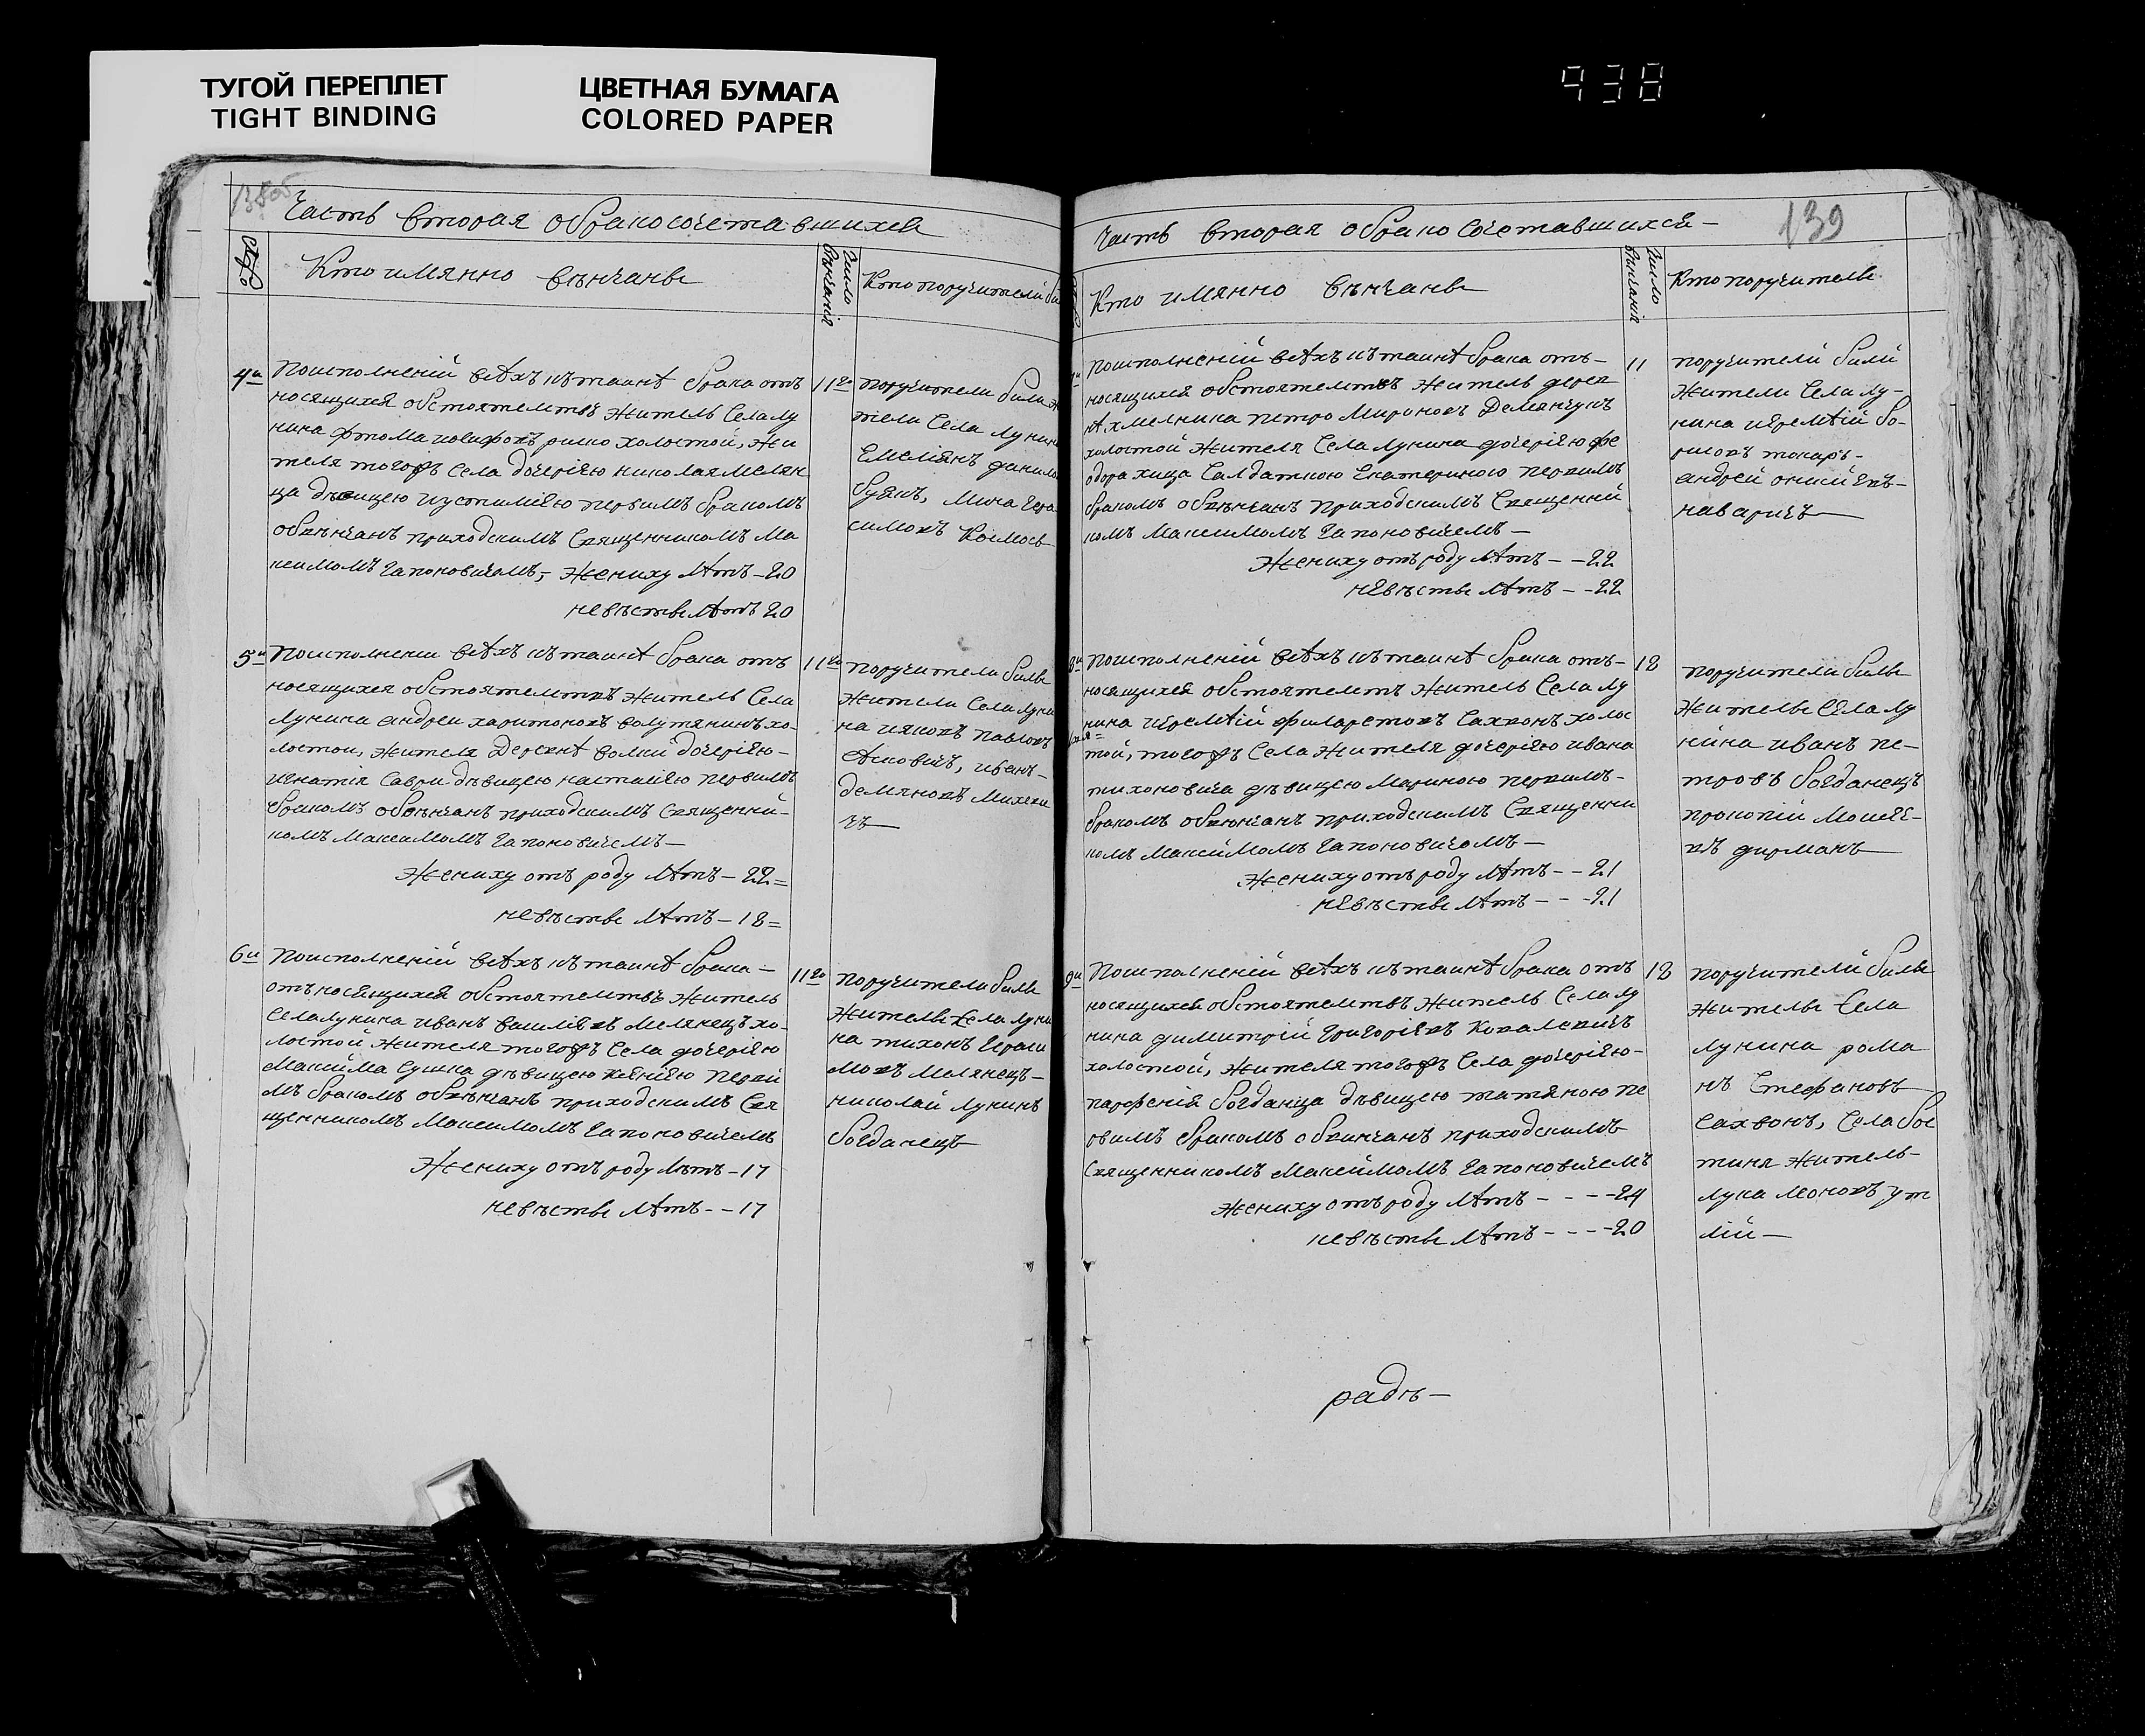 ТУГОЙ ПЕРЕПЛЕТ
TIGHT BINDING
ЦВЕТНАЯ БУМАГА
COLORED PAPER
938
138об
Часть вторая обракосочетавшихся
Кто имянно вѣнчаны
Число вѣнчанія
Кто поручители
4й
Поисполненій всѣхъ къ таинѣ брака отъ
носящихся обстоятелствъ житель села лу
нина холостой, жи
теля тогожъ села дочеріею николая мелян
ца дѣвицею иустиніею первимъ бракомъ
обвѣнчанъ приходскимъ священникомъ ма
ксимомъ гапоновичомъ, жениху лѣтъ 20
невѣсты лѣтъ 20
11го
поручители били
тели села лунина
Емелиянъ
симовъ
5й
Поисполнении всѣхъ къ таинѣ брака отъ
носящихся обстоятелствъ житель села
лунина андреи харитоновъ хо-
лостои, жителя деревнѣ волки дочеріею-
игнатія саври дѣвицею настасіею первимъ
бракомъ обвѣнчанъ приходскимъ священни-
комъ максимомъ гапоновичемъ-
жениху отъ роду лѣтъ - 22=
невѣсты лѣтъ - 18=
11го
поручители билы
жители села луни
на ияковъ павловъ
иванъ-
демяновъ
чъ
6й
Поисполненій всѣхъ къ таинѣ брака-
отъносящихся обстоятелствъ житель
села лунина иванъ василівъ мелянецъ хо-
лостои жителя тогожъ села дочеріею
максима сушка дѣвицею ксѣніею перви
мъ бракомъ обвѣнчанъ приходскимъ свя
щенникомъ максимомъ гапоновичемъ
жениху отъ роду лѣтъ - 17
невѣсты лѣтъ - - 17
11го
поручители билы
жителы села луни
на тихонъ гераси
мовъ мелянецъ-
николай лукинъ
богданецъ
139
Часть вторая обракосочетавшихся-
Кто имянно вѣнчаны
Число вѣнчанія
Кто поручителы
поисполненій всѣхъ къ таинѣ брака отъ-
носящихся обстоятелствъ житель дерев
нѣ хмелника петро мироновъ демянчукъ
холостой жителя села лунина дочеріею фе
одора хица салдаткою екатериною первимъ
бракомъ обвѣнчанъ приходскимъ священни
комъ максимомъ гапоновичемъ-
жениху отъ роду лѣтъ - - 22
невѣсты лѣтъ - - 22
11
поручители били
жители села лу-
нина иеремѣй бо-
рисовъ токаръ-
андрей
наваричъ
8й
Поисполненій всѣхъ къ таинѣ брака отъ-
носящихся обстоятелствъ житель села лу
нина иеремѣй филаретовъ сахвонъ холос
той, тогожъ села жителя дочеріею ивана
тихоновича дѣвицею мариною первимъ-
бракомъ обвѣнчанъ приходскимъ священни
комъ максимомъ гапоновичомъ-
жениху отъ роду лѣтъ - - 21
невѣсты лѣтъ - - - 21
18
поручители билы
жителы села лу
нина иванъ пе-
тровъ богданецъ
прокопій моисѣе-
въ дирманъ
9й
Поисполненій всѣхъ къ таинѣ брака отъ
носящихся обстоятелствъ житель села лу
нина димитрій григоріевъ ковалевичъ
холостой, жителя тогожъ села дочеріею-
парфенія богданца дѣвицею татяною пе
рвимъ бракомъ обвинчанъ приходскимъ
священникомъ максимомъ гапоновичемъ
жениху отъ роду лѣтъ - - - - 24
невѣсты лѣтъ - - - - 20
18
поручители билы
жителы села
лунина рома
нъ стефановъ
сахвонъ, села бос
тиня житель-
лука
лій-